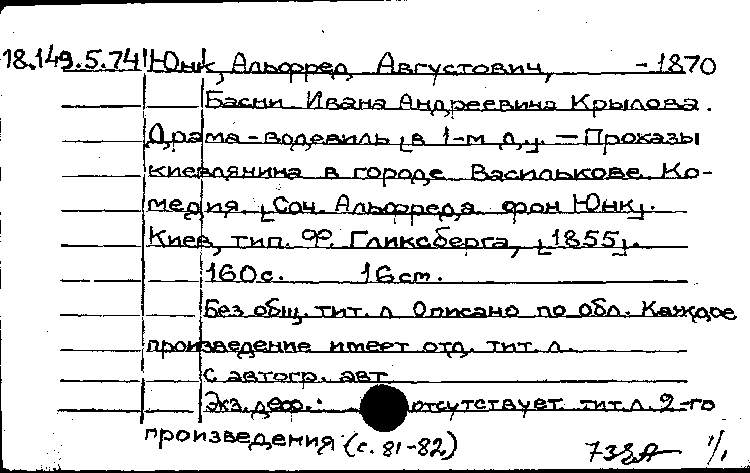 18.149.5.74 Юнк, Альфред Августович, -1870
Басни Ивана Андреевича Крылова.
Драма-водевиль [в 1-м д.]. — Проказы
киевлянина в городе Василькове. Ко-
медия. [Соч. Альфреда фон Юнк].
Киев, тип. Ф. Гликсберга, [1855].
160с. 16 см.
Без общ. тит. л. Описано по обл. Каждое
произведение имеет отд. тит. л.
С автогр. авт.
Экз. деф.: отсутствует тит. л. 2-го
произведения (с. 81-82)